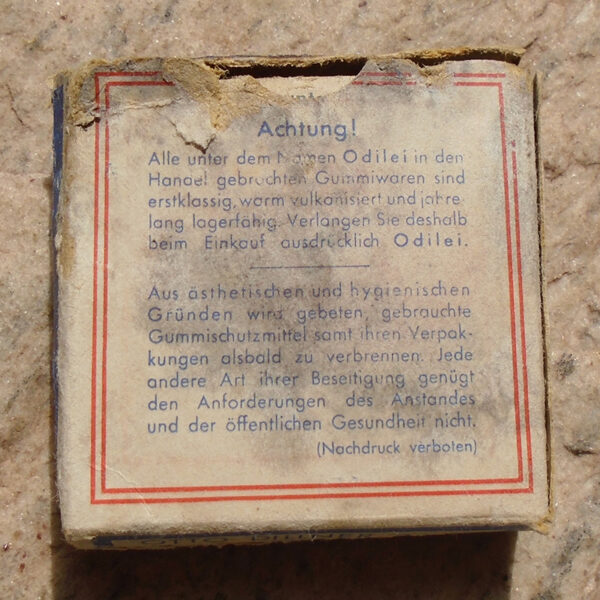 Achtung!
Alle unter dem Namen Odilei in den
Handel gebrachten Gummiwaren sind
erstklassig, warm vulkanisiert und jahre-
lang lagerfähig. Verlangen Sie deshalb
beim Einkauf ausdrücklich Odilei.
Aus ästhetischen und hygienischen
Gründen wird gebeten, gebrauchte
Gummischutzmittel samt ihren Verpak-
kungen alsbald zu verbrennen. Jede
andere Art ihrer Beseitigung genügt
den Anforderungen des Anstandes
und der öffentlichen Gesundheit nicht.
(Nachdruck verboten)